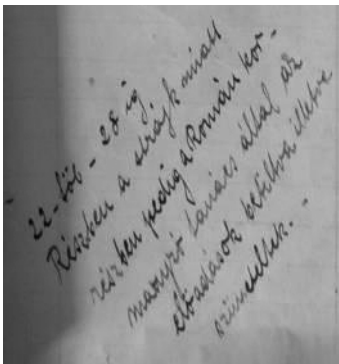 22-től - 28-ig
Részben a sztrájk miatt
részben pedig a Román kor-
mányzó tanács által az
előadások betiltva illetve
szüneteltek. -